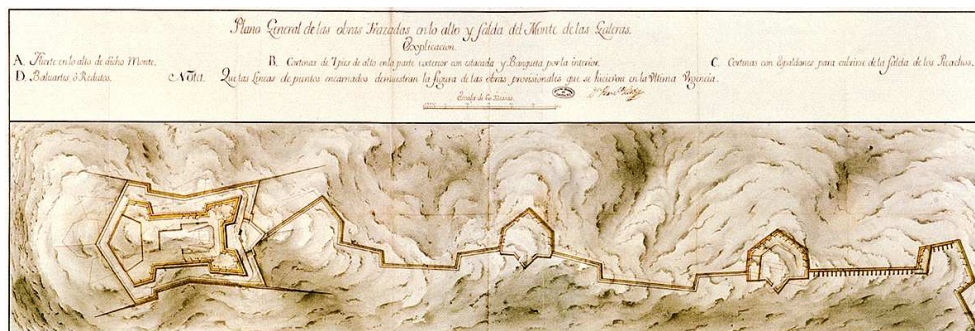 Plano General de las obras Trazadas en lo alto y falda del Monte de las Galeras.
Explicacion.
A. Fuerte en lo alto de dicho Monte.
B. Cortinas de 7 pies de alto en la parte exterior con estacada y Banqueta por la interior.
C. Cortinas con Espaldones para cubrirse de la falda de los Picachos.
D. Baluartes ó Reductos.
Nota. Que las Lineas de puntos encarnados demuestran la figura de las obras provisionales que se hicieron en la Ultima Urgencia.